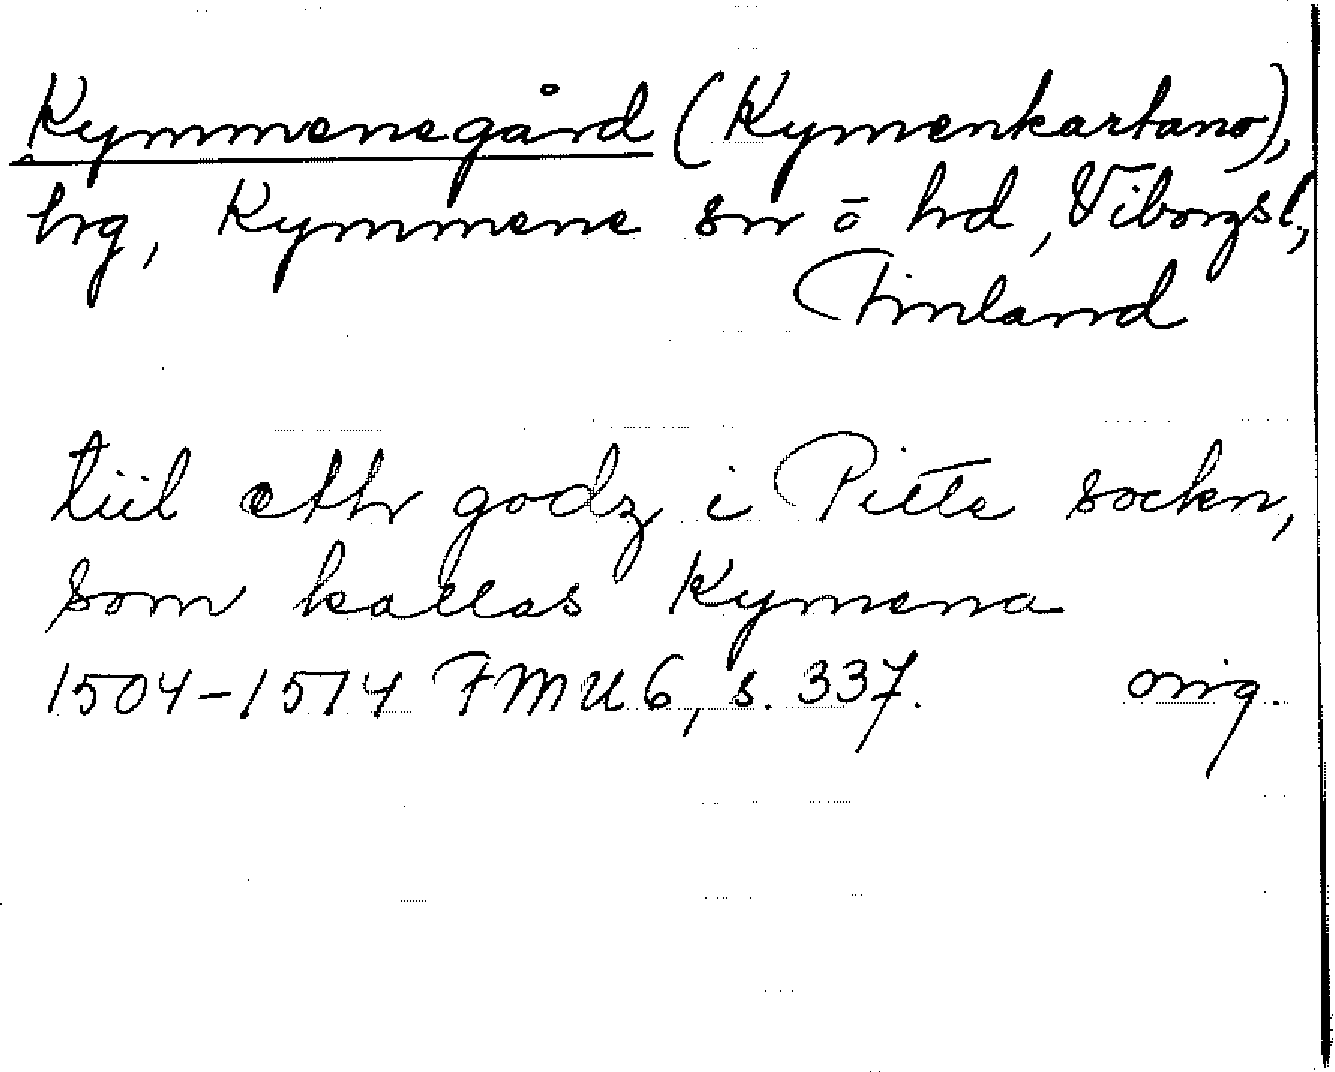 Kymmenegård (Kymenkartano),
hrg, Kymmene sn o hd, Viborgsl,
Finland
tiil etth godz i Pitte sockn,
som kallas Kymena
1504-1514 FMU 6, s. 337. orig.